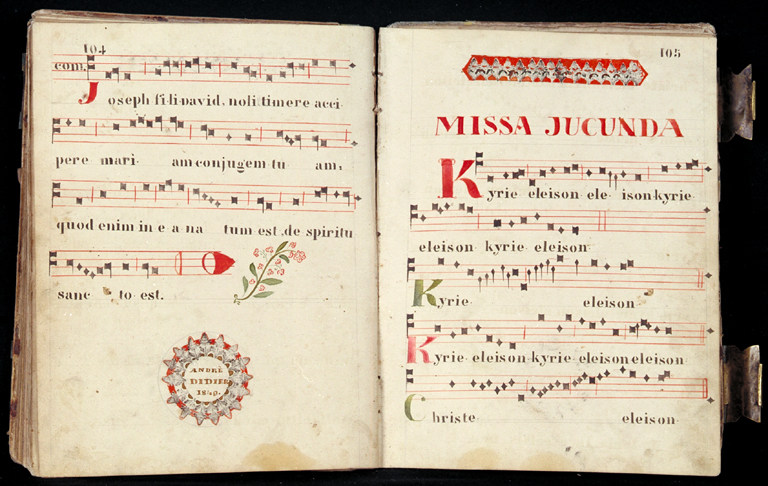 104
com.
Joseph fili David, noli timere acci
pere mari am conjugem tu am,
quod enim in e a na tum est, de spiritu
sanc to est.
ANDRÉ
DIDIER
105
MISSA JUCUNDA
Kyrie eleison ele ison kyrie
eleison kyrie eleison
Kyrie eleison
Kyrie eleison kyrie eleison eleison
Christe eleison